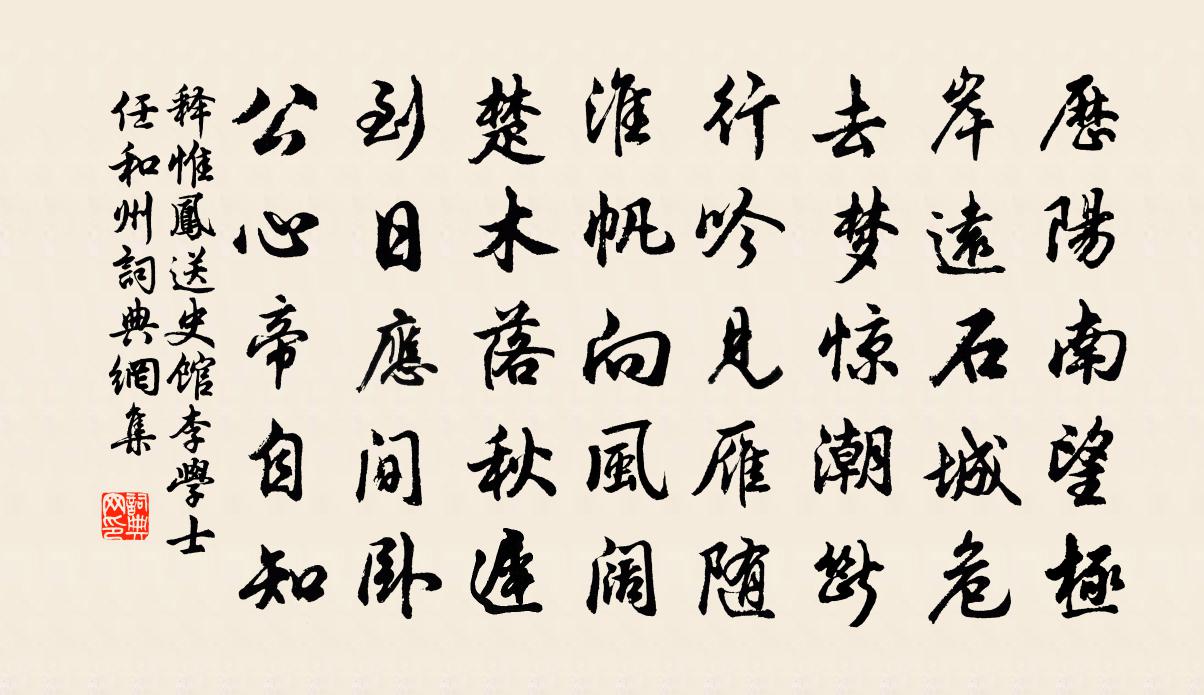 歷陽南望極
岸遠石城危
去梦惊潮斷
行吟見雁随
淮帆向風阔
楚木落秋遲
到日應閒卧
公心帝自知
释惟鳳送史馆李學士
任和州詞典網集
詞典
网印